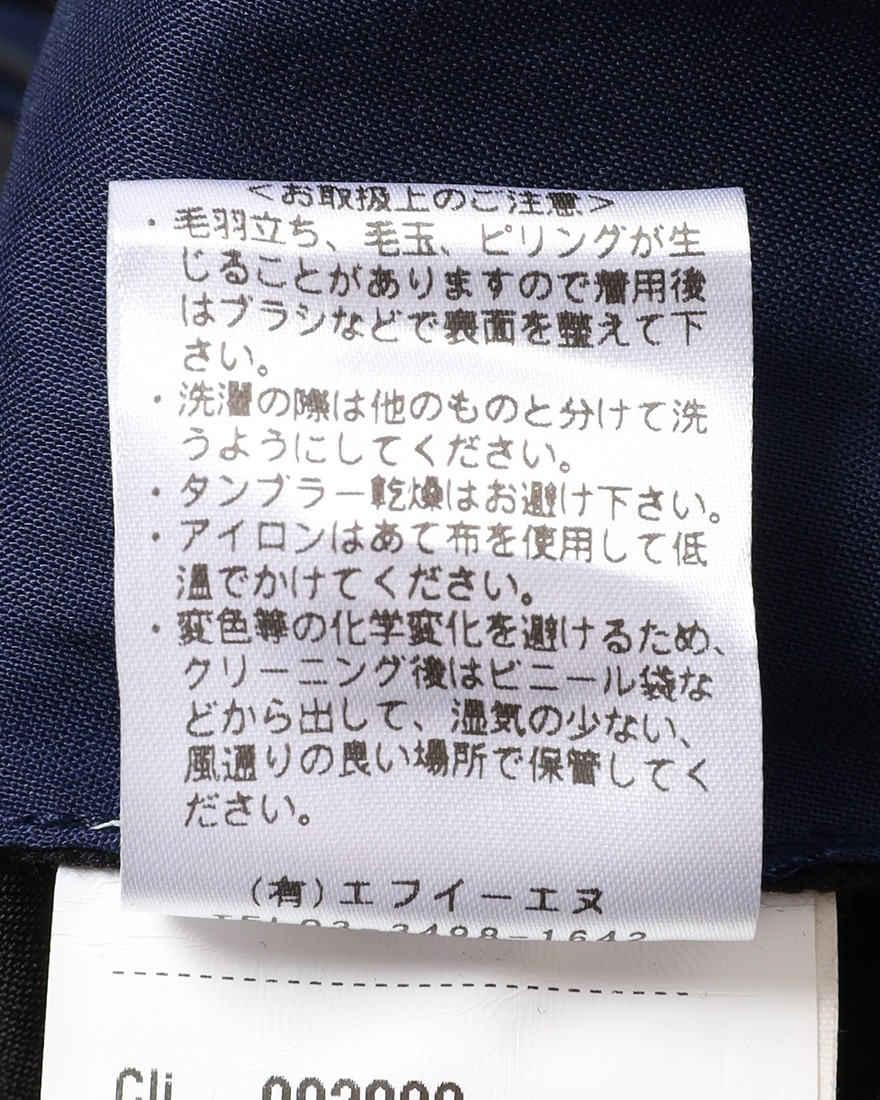 <お取扱上のご注意>
・毛羽立ち、毛玉、ピリングが生
じることがありますので着用後
はブラシなどで表面を整えて下
さい。
・洗濯の際は他のものと分けて洗
うようにしてください。
・タンブラー乾燥はお避け下さい。
・アイロンはあて布を使用して低
温でかけてください。
・変色等の化学変化を避けるため、
クリーニング後はビニール袋な
どから出して、湿気の少ない、
風通りの良い場所で保管してく
ださい。
(有)エフイーエヌ
TEL03-3498-1642